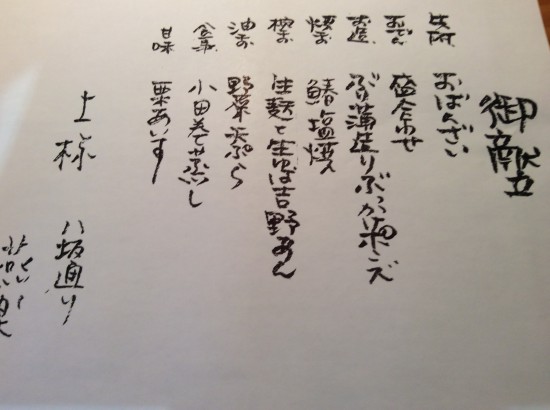 御献立
先附 おばんざい
おでん 盛合わせ
お造 ぶり薄造りぶっかけポンズ
焼物 鰆塩焼
椀物 生麩と生ゆば吉野あん
油物 野菜天ぷら
食事 小田巻き蒸し
甘味 栗あいす
上様 八坂通り